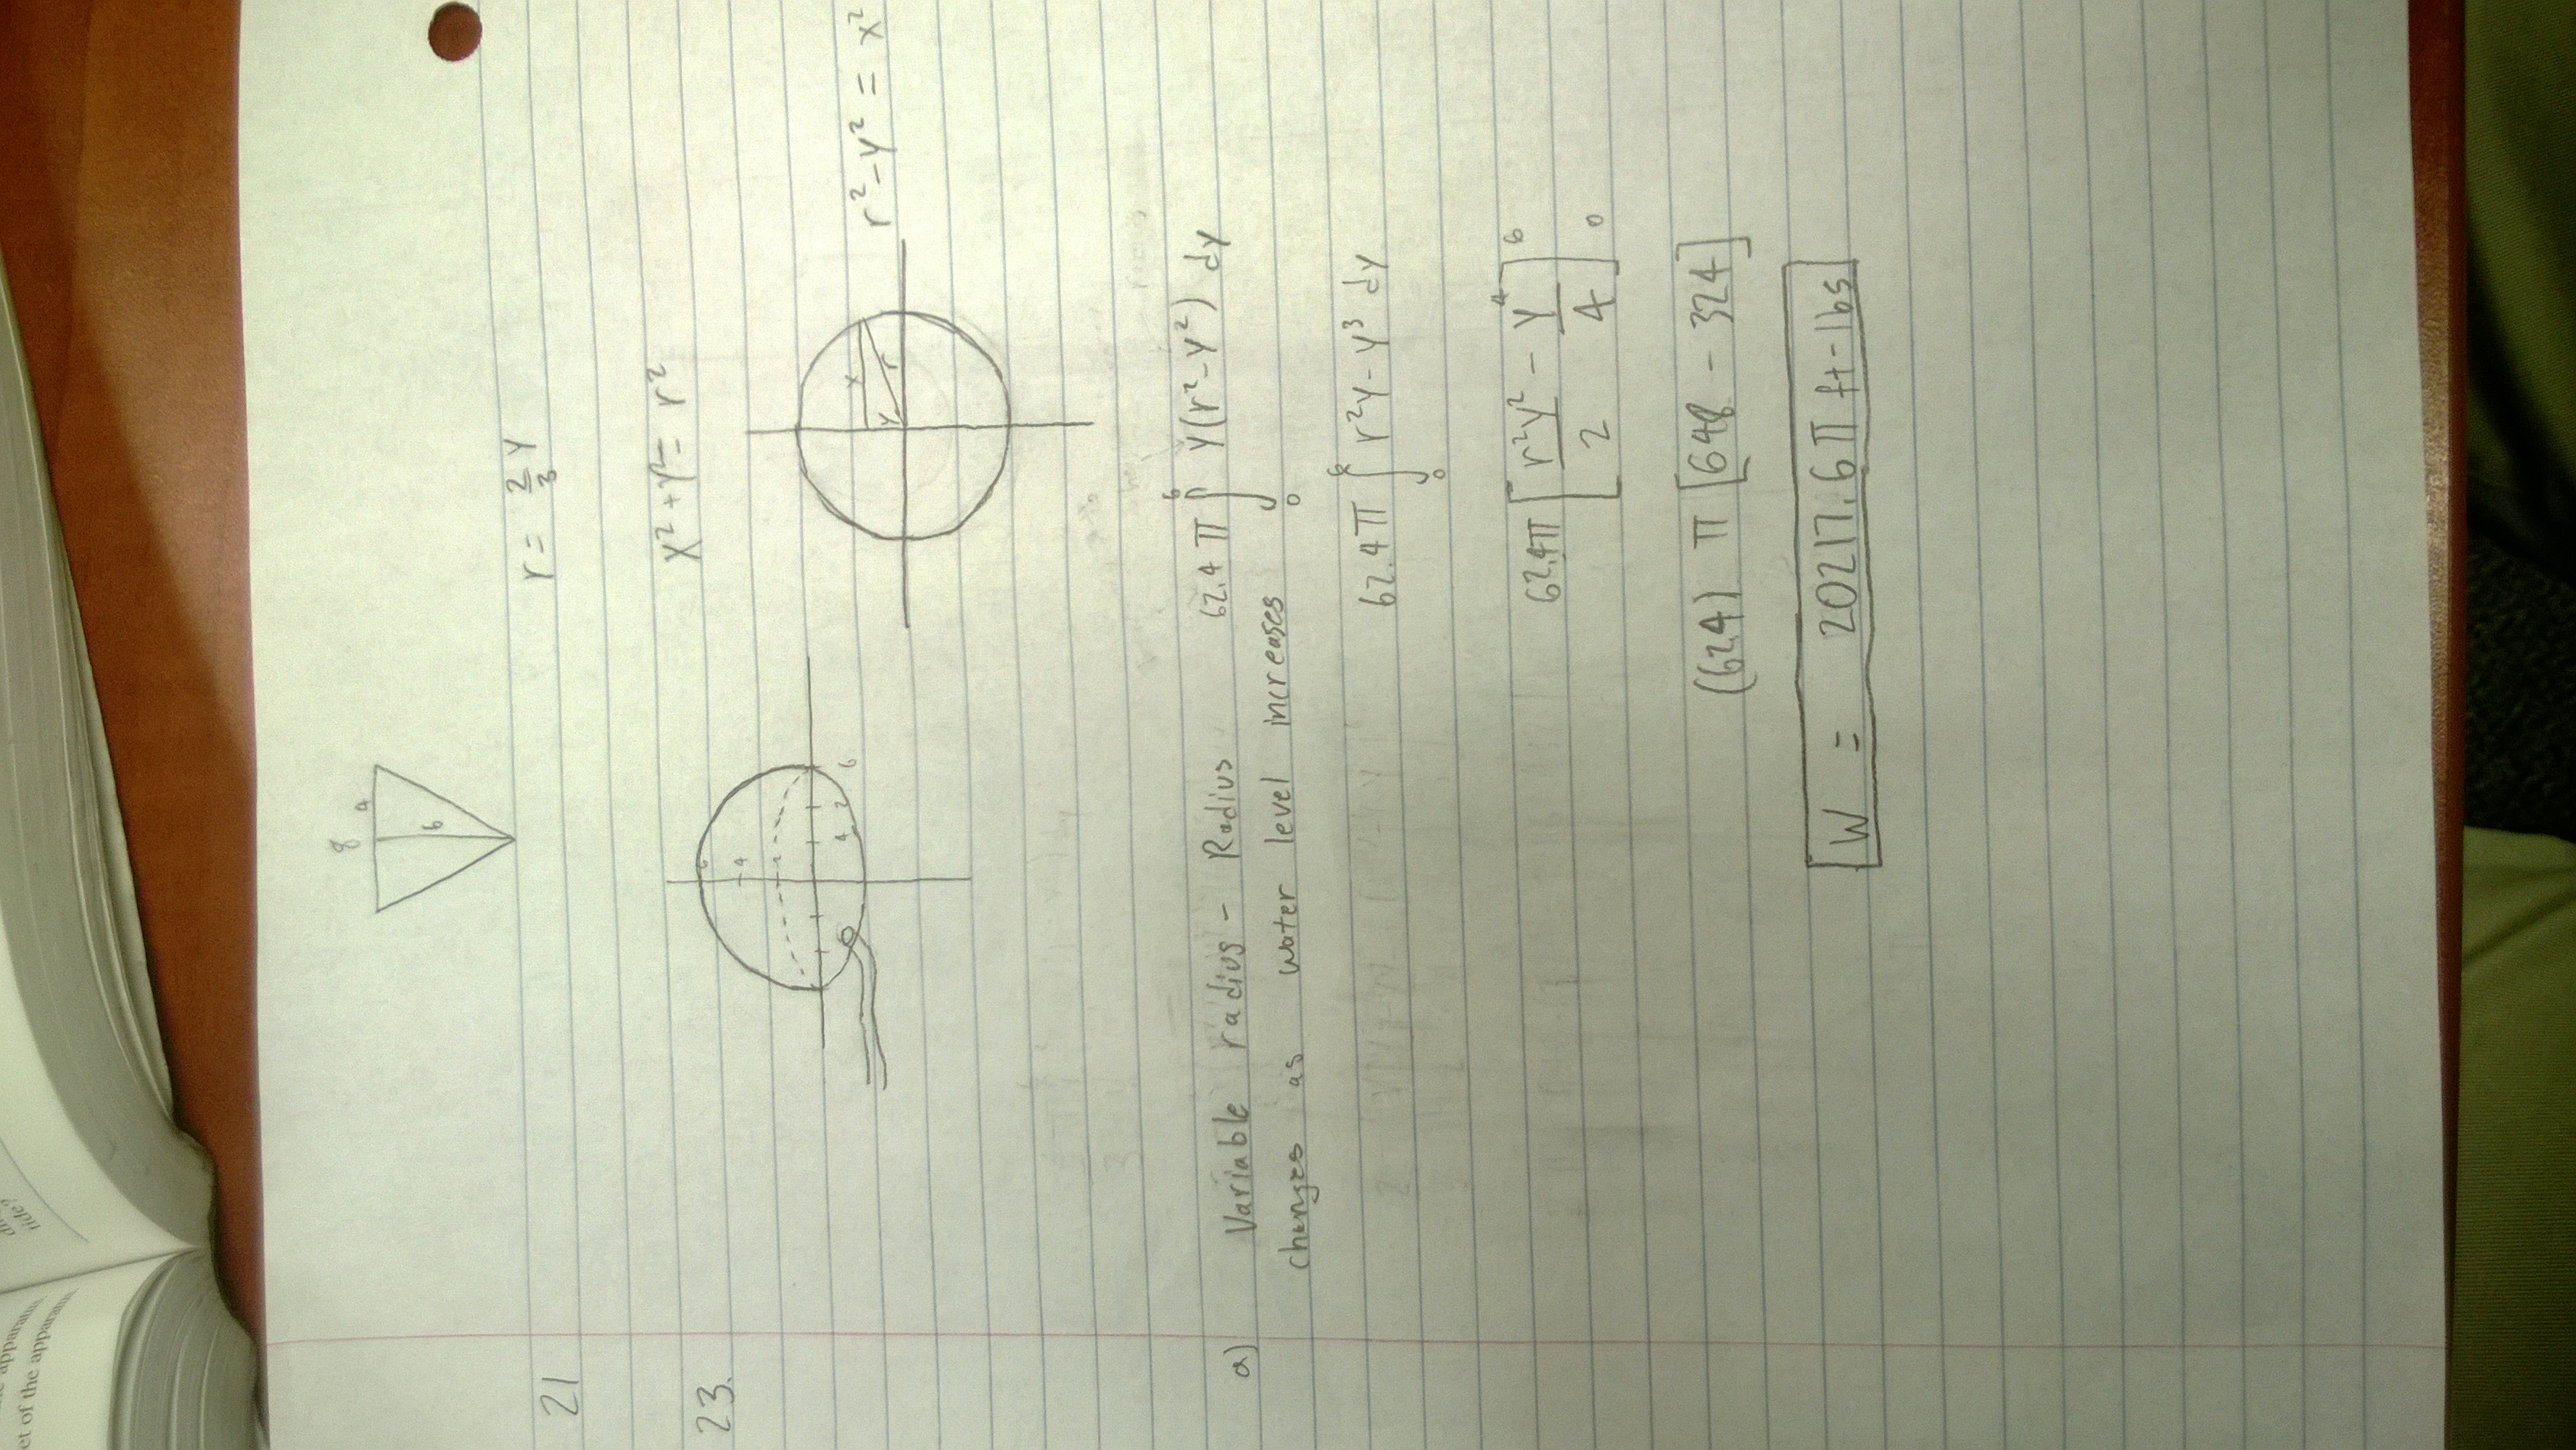 8
4
6
21
r = 2/3 y
23.
x² + y² = r²
6
4
4 2 6
x
y r
r² - y² = x²
a) Variable radius - Radius
changes as water level increases
62.4 π ∫₀⁶ y(r² - y²) dy
62.4 π ∫₀⁶ r²y - y³ dy
62.4π [r²y²/2 - y⁴/4]₀⁶
(62.4) π [648 - 324]
W = 20217.6 π ft-lbs
ride?
apparatus
et of the apparatu